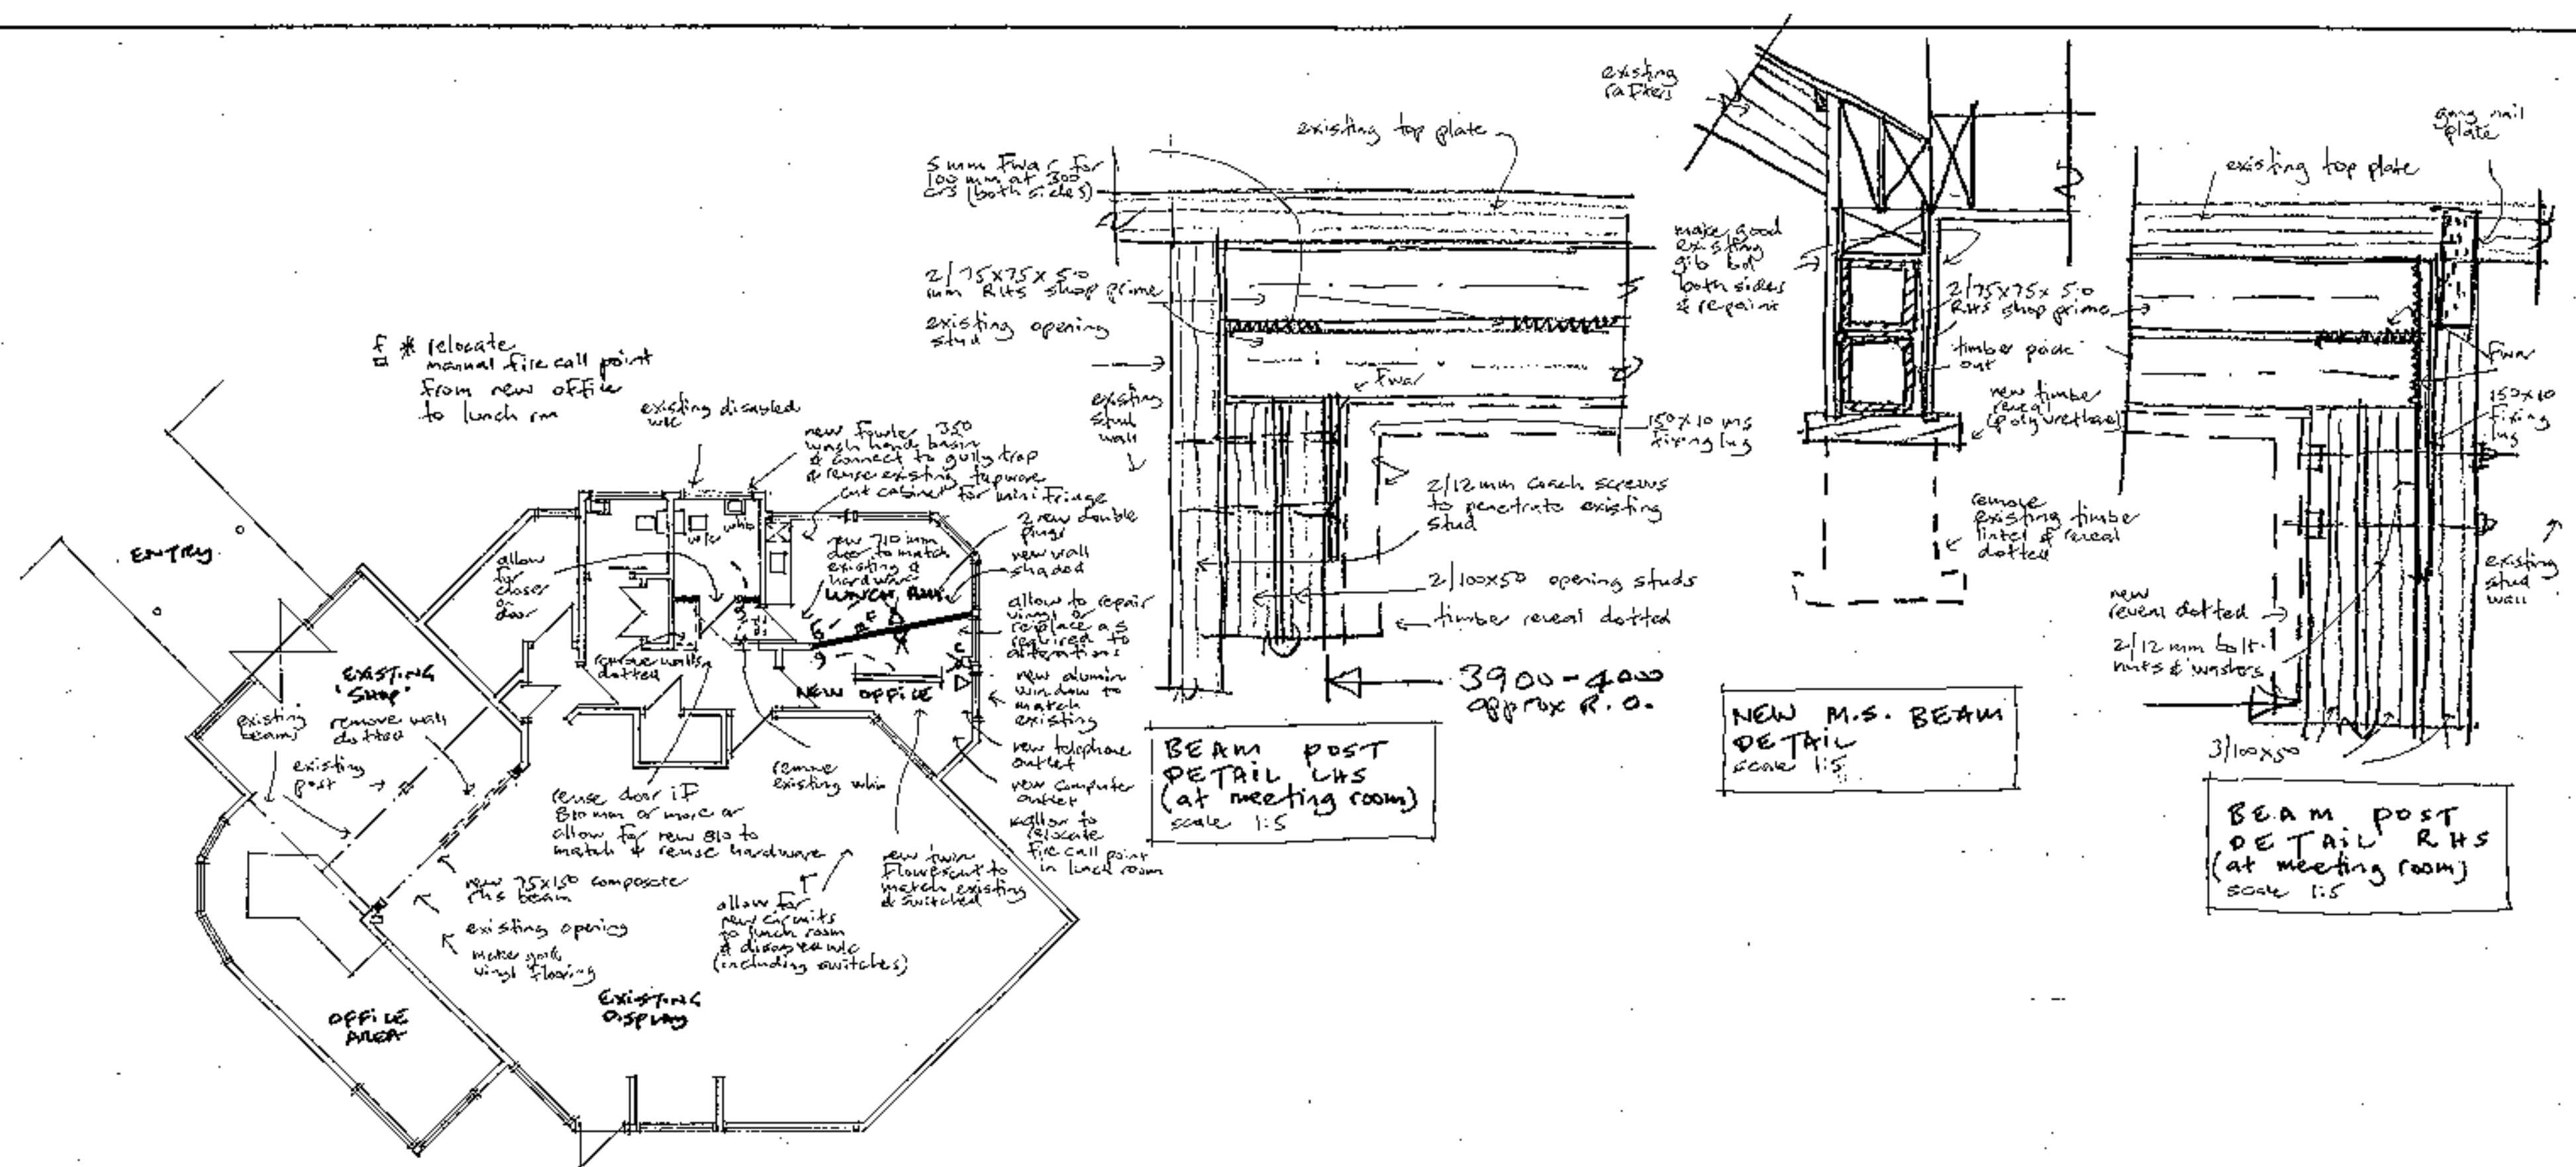 f * relocate
manual fire call point
from new office
to lunch rm
ENTRY
existing disabled
w/c
new Fowler 350
wash hand basin
& connect to gully trap
& reuse existing tapware
cut cabinet for mini fridge
2 new double
plugs
new wall
shaded
new 710 mm
door to match
existing &
hardware
LUNCH RM.
whb
w/c
allow
for
closer
on
door
remove walls
dotted
NEW OFFICE
allow to repair
vinyl or
replace as
required to
alterations
new alumin
window to
match
existing
new telephone
outlet
new computer
outlet
allow to
relocate
fire call point
in lunch room
EXISTING
'SHOP'
existing
beams
remove wall
dotted
existing
post
remove
existing whb
reuse door if
810 mm or more or
allow for new 810 to
match & reuse hardware
new 75x150 composite
rhs beam
existing opening
make good
vinyl flooring
allow for
new circuits
to lunch room
& disabled w/c
(including switches)
new twin
flourescent to
match existing
& switched
EXISTING
DISPLAY
OFFICE
AREA
5 mm fwar for
100 mm at 300
crs (both sides)
existing top plate
2/75x75x5.0
mm RHS shop prime
existing opening
stud
existing
stud
wall
fwar
150x10 ms
fixing lug
2/12mm coach screws
to penetrate existing
stud
2/100x50 opening studs
timber reveal dotted
3900-4000
approx R.O.
BEAM POST
DETAIL LHS
(at meeting room)
scale 1:5
existing
rafters
make good
existing
gib bd
both sides
& repaint
2/75x75x5.0
RHS shop prime
timber pack
out
new timber
reveal
(polyurethane)
remove
existing timber
lintel & reveal
dotted
NEW M.S. BEAM
DETAIL
scale 1:5
gang nail
plate
existing top plate
fwar
150x10
fixing
lug
existing
stud
wall
new
reveal dotted
2/12 mm bolts
nuts & washers
3/100x50
BEAM POST
DETAIL RHS
(at meeting room)
scale 1:5